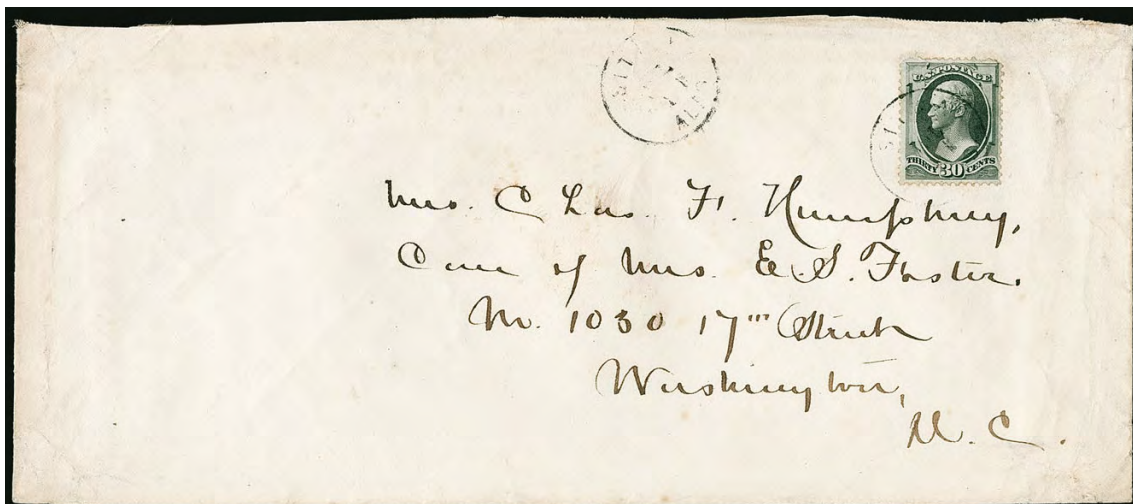 U.S. POSTAGE
THIRTY 30 CENTS
Mrs. Chas. F. Humphrey,
Care of Mrs. E. S. Foster.
No. 1030 17th Street
Washington,
D. C.